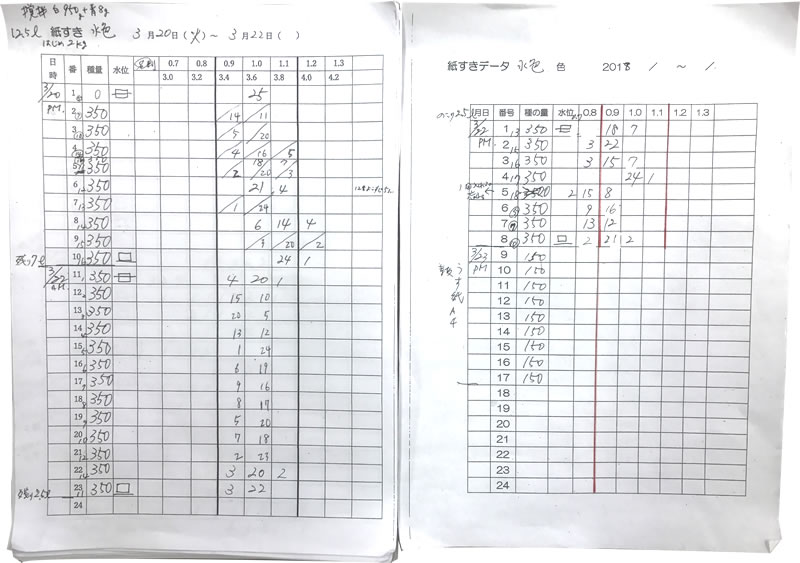 12.5ℓ 紙すき 水色 3月20日(火)～3月22日( )
はじめ2kg
日時 番 種量 水位 0.7 0.8 0.9 1.0 1.1 1.2 1.3
3.0 3.2 3.4 3.6 3.8 4.0 4.2
3/20 1 0 25
PM. 2 350 14 11
3 350 5 20
4 350 4 16 5
5 350 2 20 3
6 350 21 4
7 350 1 24
8 350 6 14 4
9 350 3 20 2
残り7ℓ 10 350 24 1
3/22 11 350 4 20 1
AM. 12 350 15 10
13 350 20 5
14 350 13 12
15 350 1 24
16 350 6 19
17 350 9 16
18 350 8 17
19 350 5 20
20 350 7 18
21 350 2 23
22 350 3 20 2
残り2.5ℓ 23 350 3 22
24
紙すきデータ 水色 色 2018 / ～ /
月日 番号 種の量 水位 0.8 0.9 1.0 1.1 1.2 1.3
3/22 1 350 18 7
PM. 2 350 3 22
3 350 3 15 7
4 350 24 1
5 350 2 15 8
6 350 9 16
7 350 13 12
8 350 2 21 2
3/23 9 150
PM 10 150
11 150
12 150
13 150
14 150
15 150
16 150
17 150
18
19
20
21
22
23
24
うす紙A4